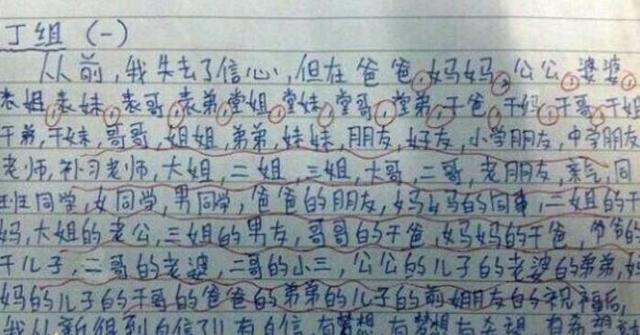 丁组 (一)
从前,我失去了信心,但在爸爸,妈妈,公公,婆婆,
表姐,表妹,表哥,表弟,堂姐,堂妹,堂哥,堂弟,干爸,干妈,干哥,干姐
干弟,干妹,哥哥,姐姐,弟弟,妹妹,朋友,好友,小学朋友,中学朋友
老师,补习老师,大姐,二姐,三姐,大哥,二哥,老朋友,亲戚,同
班同学,女同学,男同学,爸爸的朋友,妈妈的同事,二姐的干
妈,大姐的老公,三姐的男友,哥哥的干爸,妈妈的干爸,爷爷的
干儿子,二哥的老婆,二哥的小三,公公的儿子的老婆的弟弟,
妈的儿子的干哥的爸爸的弟弟的儿子的前女朋友的祝福后,
我从新得到自信了!!有自信,有梦想,有梦想